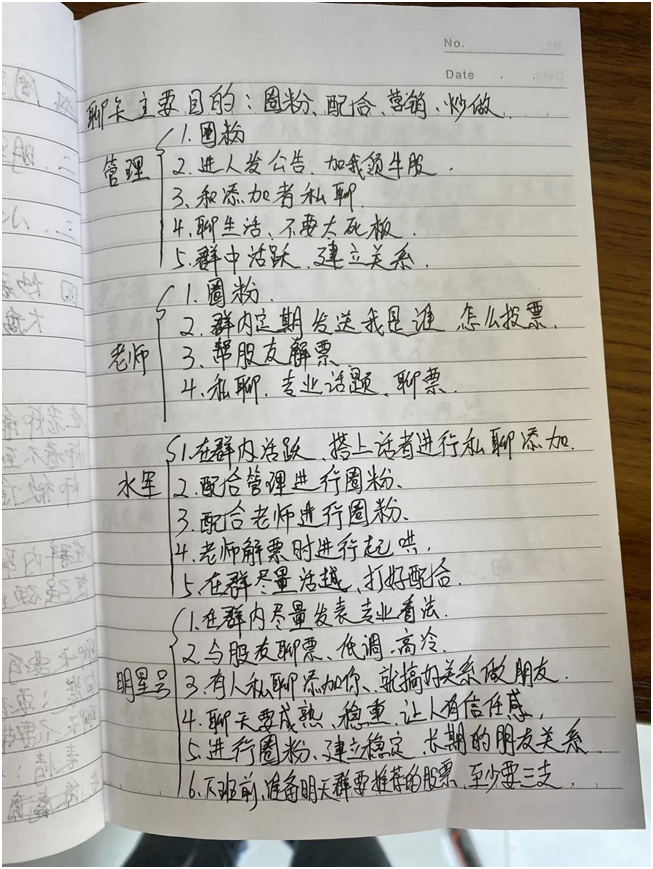 No.
Date . .
聊天主要目的：圈粉、配合、营销、炒做
1. 圈粉
管理 2. 进人发公告、加我领牛股.
3. 和添加者私聊.
4. 聊生活、不要太死板.
5. 群中活跃、建立关系.
1. 圈粉.
2. 群内定期发送我是谁 怎么投票.
老师 3. 帮股友解票
4. 私聊、专业话题、聊票.
1. 在群内活跃、搭上话者进行私聊添加.
水军 2. 配合管理进行圈粉、
3. 配合老师进行圈粉、
4. 老师解票时进行起哄.
5. 在群尽量活越、打好配合.
1. 在群内尽量发表专业看法.
2. 与股友聊票、低调、高冷.
明星号 3. 有人私聊添加你、就搞好关系做朋友.
4. 聊天要成熟、稳重、让人有信任感.
5. 进行圈粉、建立稳定、长期的朋友关系.
6. 下班前,准备明天群要推荐的股票、至少要三支.